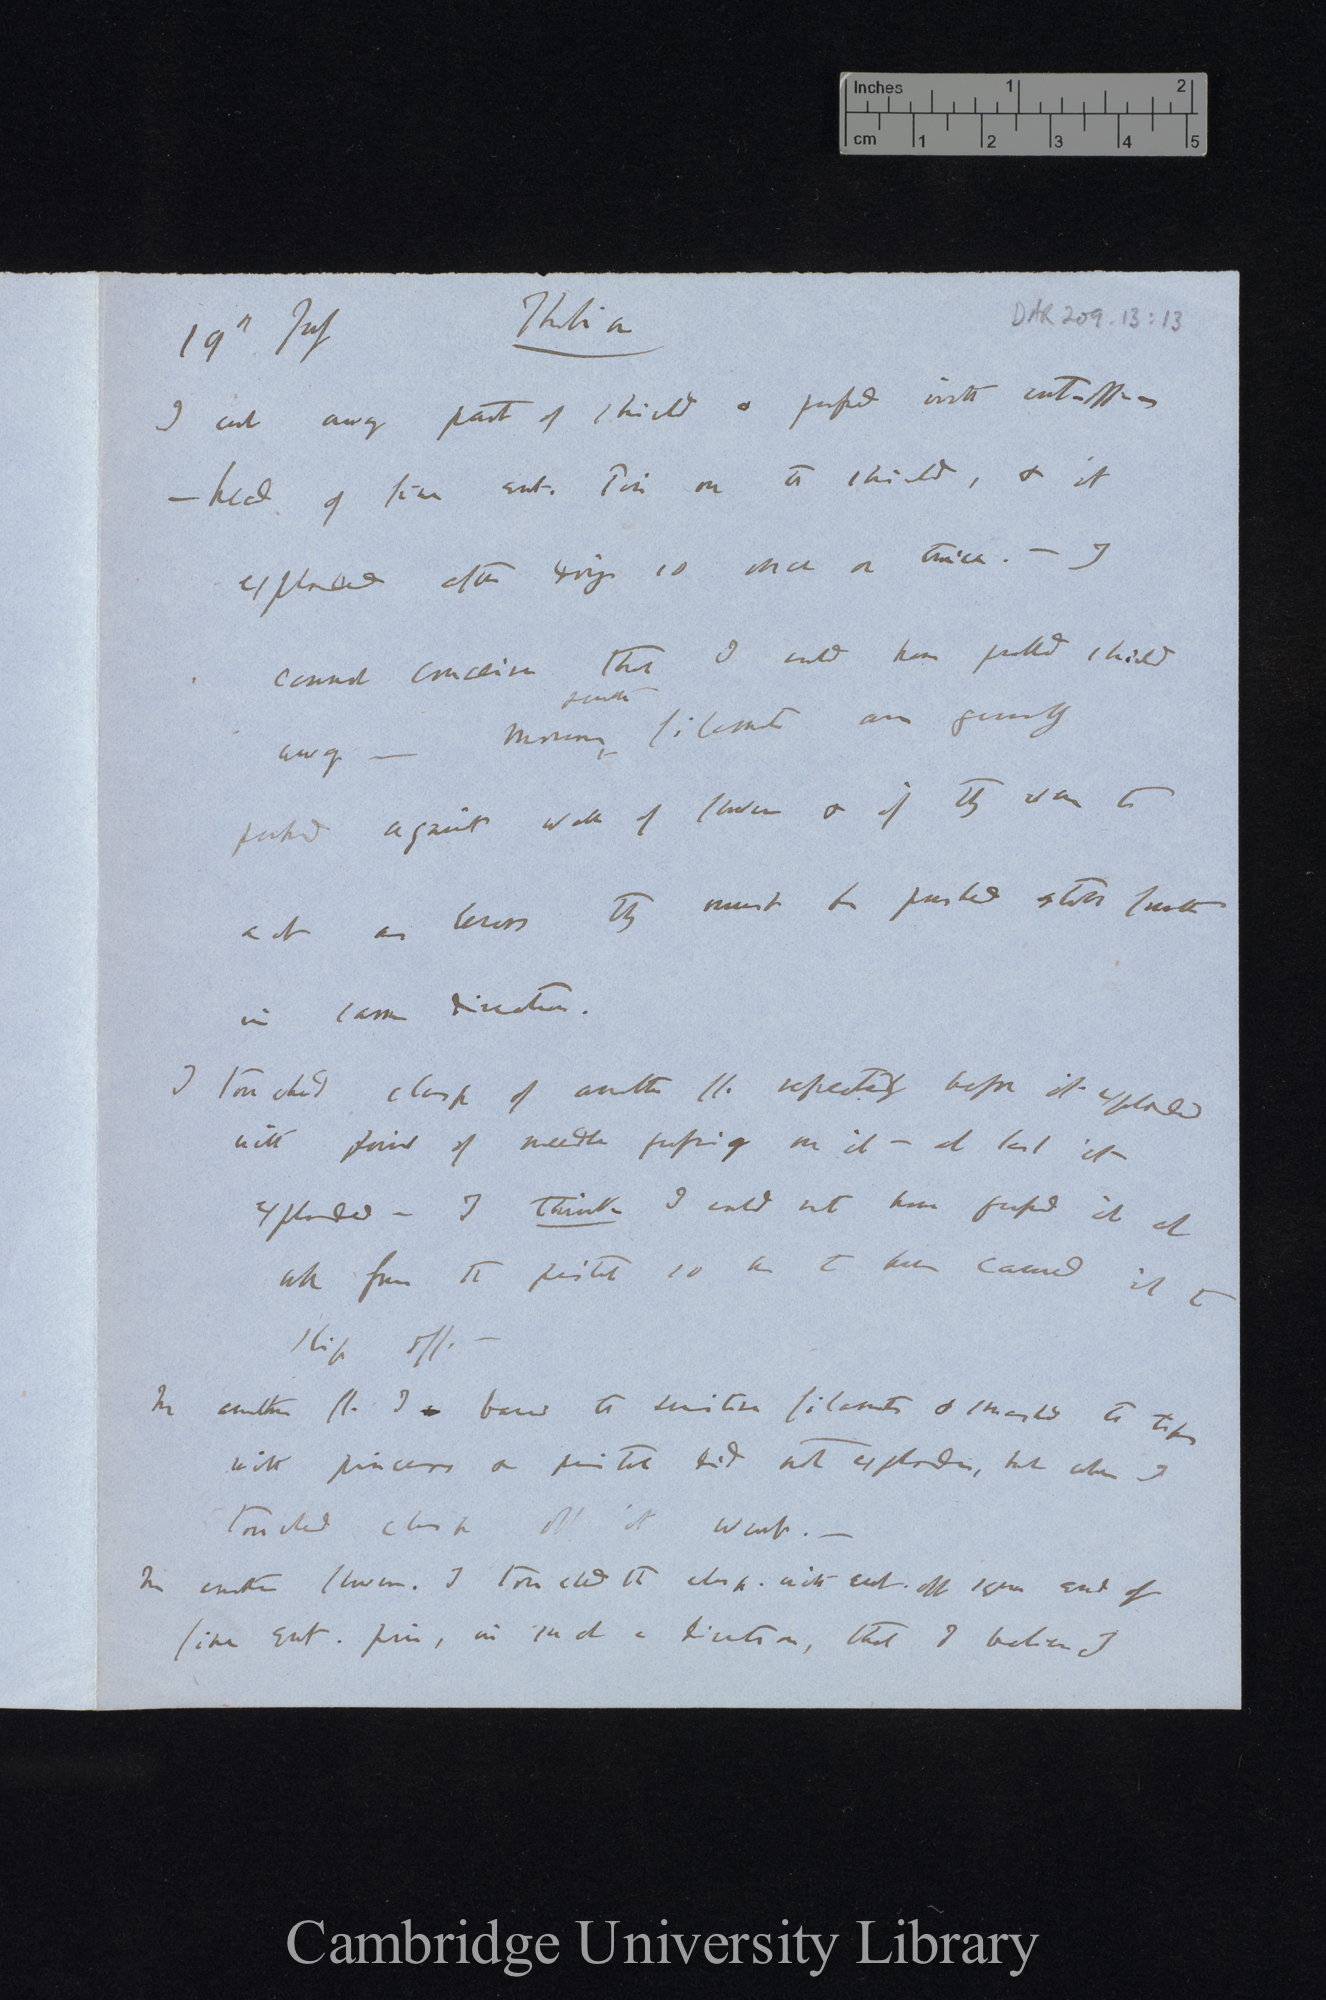 Inches 1 2
cm 1 2 3 4 5
DAR 209.13:13
19th July Thalia
I cut away part of shield & pushed with cut-off
— head of fine ent. Pin on to shield, & it
exploded after doing so once or twice. — I
cannot conceive that I could have pulled shield
away — Moreover, filaments are generally
pushed against wall of flower & if they were to
act as levers they must be pushed still further
in same direction.
I touched clasp of another fl. repeatedly before it exploded
with point of needle pressing on it — at last it
exploded — I think I could not have pushed it at
all from the pistil so as to have caused it to
slip off. —
In another fl. I bared the sensitive filaments & smashed the tips
with pincers & pistil did not explode, but when I
touched clasp off it went. —
In another flower. I touched the clasp. with cut-off square end of
fine ent. pin, in such a direction, that I believe I
Cambridge University Library